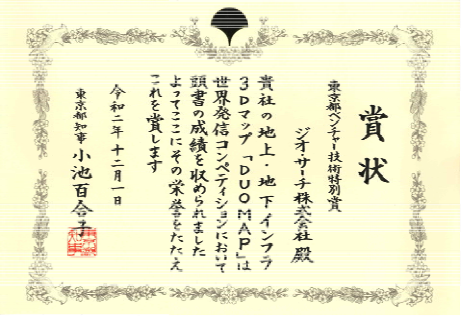 賞状
東京都ベンチャー技術特別賞
ジオ・サーチ株式会社 殿
貴社の地上・地下インフラ
3Dマップ「DUOMAP」は
世界発信コンペティションにおいて
頭書の成績を収められました
よってここにその栄誉をたたえ
これを賞します
令和二年十二月一日
東京都知事 小池百合子